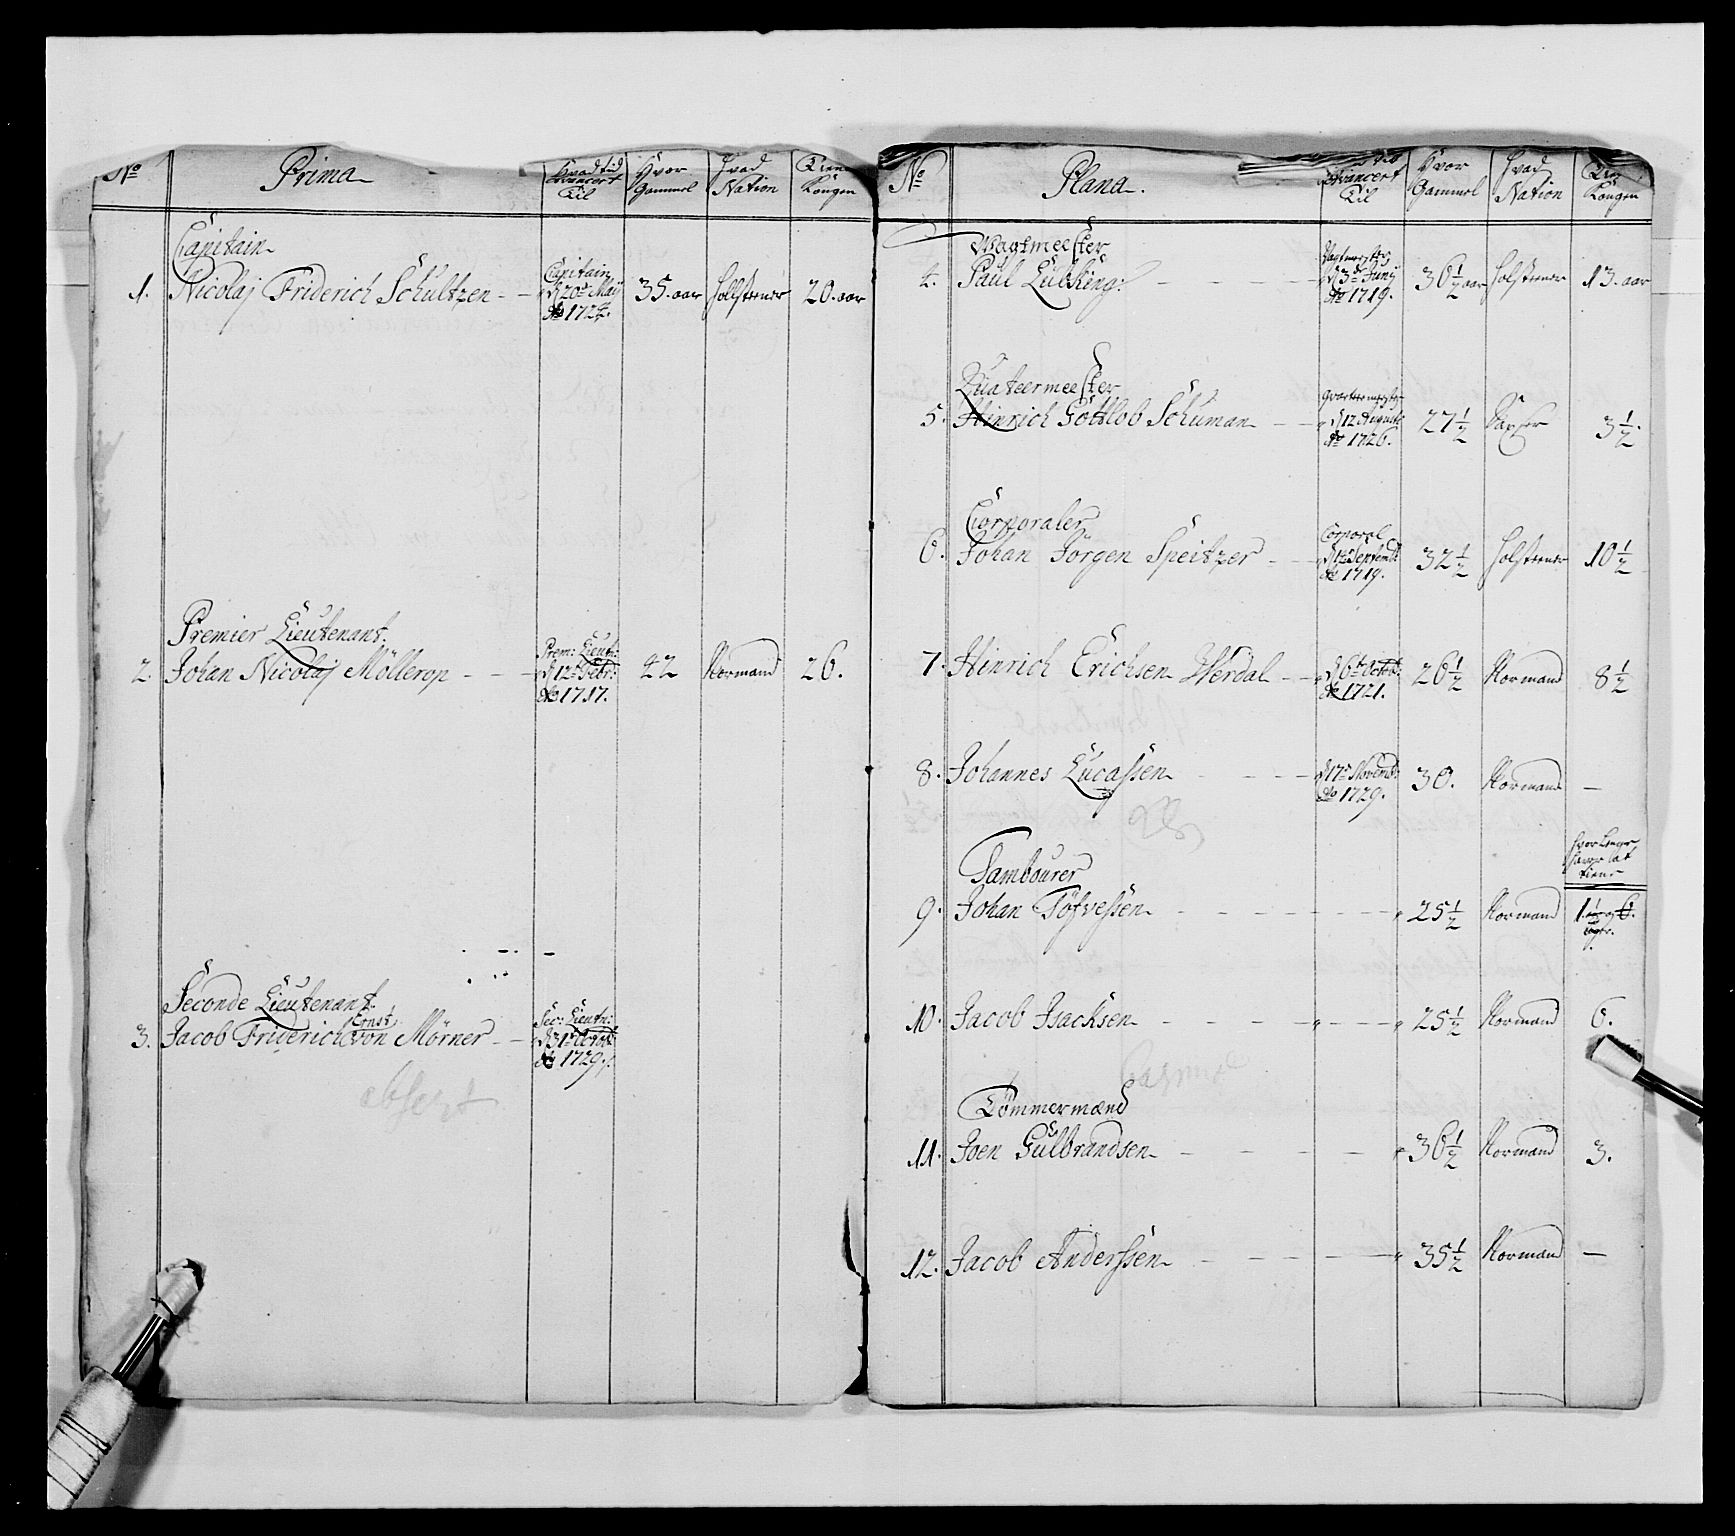 No
Prima
Hvad tid
Avancert
Til
Hvor
Gammel
Hvad
Nation
Kongen
Capitain
1. Nicolaj Friderich Schultzen
Capitain
d 20 t May
Ao 1724.
35. aar
Hollsteener
20. aar
Premier Lieutenant.
2. Johan Nicolaj Möllerop
Prem: Lieut:
d 12 t Febr:
Ao 1717.
42
Normand
26.
Seconde Lieutenant.
Ernst
3. Jacob Friderich von Mörner
Sec: Lieutn:
d 31 t Octob:
Ao 1729.
absent
No
Plana.
Avancert
Til
Hvor
Gammel
Hvad
Nation
Kongen
Wagtmeester
4. Paul Lübking:
d 3 t Junÿ
Ao 1719.
36 1/2 aar
Holsteener
13. aar
Quateermeester
5. Hinrich Gottlob Schuman
d 12 Augusti
Ao 1726.
27 1/2
Saxser
3 1/2.
Corporaler
6. Johan Jörgen Speitzer
Corporal
Septemb:
Ao 1719.
32 1/2
Holsteener
10 1/2
7. Hinrich Erichsen Werdal
d 6 t Octob:
Ao 1721.
26 1/2
Normand
8 1/2
8. Johannes Lucassen
d 17 Novemb:
Ao 1729.
30.
Normand
—
Tambourer
hvor Lenge
tiene
9. Johan Töfvessen
25 1/2
Normand
10. Jacob Jsacksen
25 1/2
Normand
6.
Tömmermænd
11. Joen Gülbrandsen
36 1/2
Normand
3.
12. Jacob Anderssen
35 1/2
Normand
—